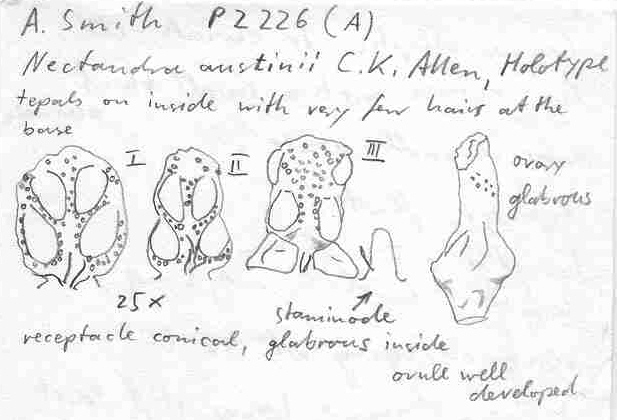 A. Smith P2226 (A)
Nectandra austinii C.K. Allen, Holotype
tepals on inside with very few hairs at the
base
I II III
ovary
glabrous
25 x
staminode
receptacle conical, glabrous inside
ovule well
developed